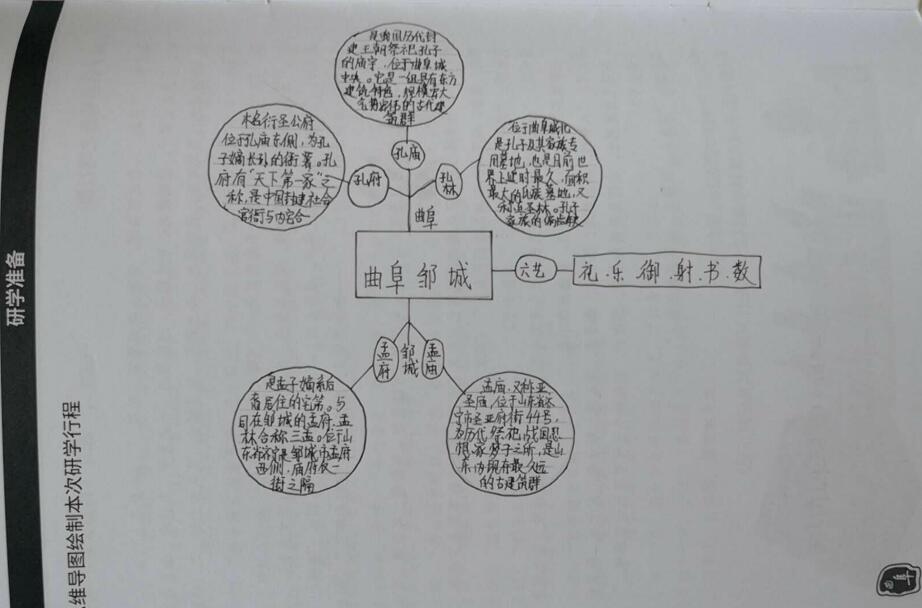 研学准备
维导图绘制本次研学行程
是我国历代封
建王朝祭祀孔子
的庙宇,位于曲阜城
中央。它是一组具有东方
建筑特色,规模宏大
气势雄伟的古代建
筑群
孔庙
本名衍圣公府
位于孔庙东侧,为孔
子嫡长孙的衙署。孔
府有“天下第一家”之
称,是中国封建社会
官衙与内宅合一
孔府
位于曲阜城北
是孔子及其家族专
用墓地,也是目前世
界上延时最久,面积
最大的氏族墓地,又
称至圣林。孔子
家族的
孔林
曲阜
曲阜 邹城
六艺
礼.乐.御.射.书.数
孟府
邹城
孟庙
是孟子嫡系后
裔居住的宅第。与
同在邹城的孟府.孟
林合称三孟。位于山
东省济宁邹城市孟府
西侧,庙府仅一
街之隔
孟庙,又称亚
圣庙,位于山东省济
宁市亚圣府街44号,
为历代祭祀战国思
想家孟子之所,是山
东省现存最久远
的古建筑群
阜